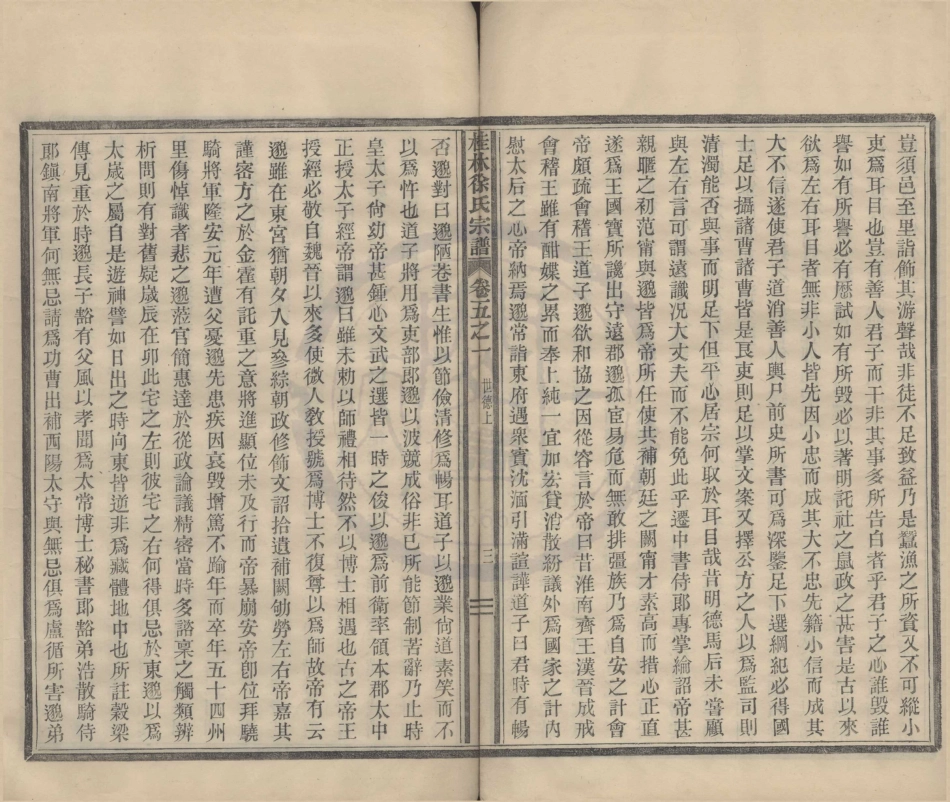 豈須邑至里詣飾其游聲哉非徒不足致益乃是蠶漁之所資又不可縱小
吏爲耳目也豈有善人君子而干非其事多所告白者乎君子之心誰毀誰
譽如有所譽必有歷試如有所毀必以著明託社之鼠政之甚害是古以來
欲爲左右耳目者無非小人皆先因小忠而成其大不忠先籍小信而成其
大不信遂使君子道消善人輿尸前史所書可爲深鑒足下選綱紀必得國
士足以攝諸曹諸曹皆是良吏則足以掌文案又擇公方之人以爲監司則
清濁能否與事而明足下但平心居宗何取於耳目哉昔明德馬后未嘗顧
與左右言可謂遠識况大丈夫而不能免此乎遷中書侍郎專掌綸詔帝甚
親暱之初范甯與邈皆爲帝所任使共補朝廷之闕甯才素高而措心正直
遂爲王國寶所讒出守遠郡邈孤宦易危而無敢排彊族乃爲自安之計會
帝頗疏會稽王道子邈欲和協之因從容言於帝曰昔淮南齊王漢晉成戒
會稽王雖有酣媟之累而奉上純一宜加宏貸消散紛議外爲國家之計內
慰太后之心帝納焉邈常詣東府遇眾賓沈湎引滿諠譁道子曰君時有暢
桂林徐氏宗譜
卷五之一
世德上
三
否邈對曰邈陋巷書生惟以節儉清修爲暢耳道子以邈業尙道素笑而不
以爲忤也道子將用爲吏部郎邈以波競成俗非已所能節制苦辭乃止時
皇太子尙幼帝甚鍾心文武之選皆一時之俊以邈爲前衛率領本郡太中
正授太子經帝謂邈曰雖未勅以師禮相待然不以博士相遇也古之帝王
授經必敬自魏晉以來多使微人敎授號爲博士不復尊以爲師故帝有云
邈雖在東宮猶朝夕入見參綜朝政修飾文詔拾遺補闕劬勞左右帝嘉其
謹密方之於金霍有託重之意將進顯位未及行而帝暴崩安帝卽位拜驍
騎將軍隆安元年遭父憂邈先患疾因哀毀增篤不踰年而卒年五十四州
里傷悼識者悲之邈蒞官簡惠達於從政論議精密當時多諮稟之觸類辨
析問則有對舊疑歲辰在卯此宅之左則彼宅之右何得俱忌於東邈以爲
太歲之屬自是遊神譬如日出之時向東皆逆非爲藏體地中也所註穀梁
傳見重於時邈長子豁有父風以孝聞爲太常博士秘書郎豁弟浩散騎侍
郎鎮南將軍何無忌請爲功曹出補西陽太守與無忌俱爲盧循所害邈弟